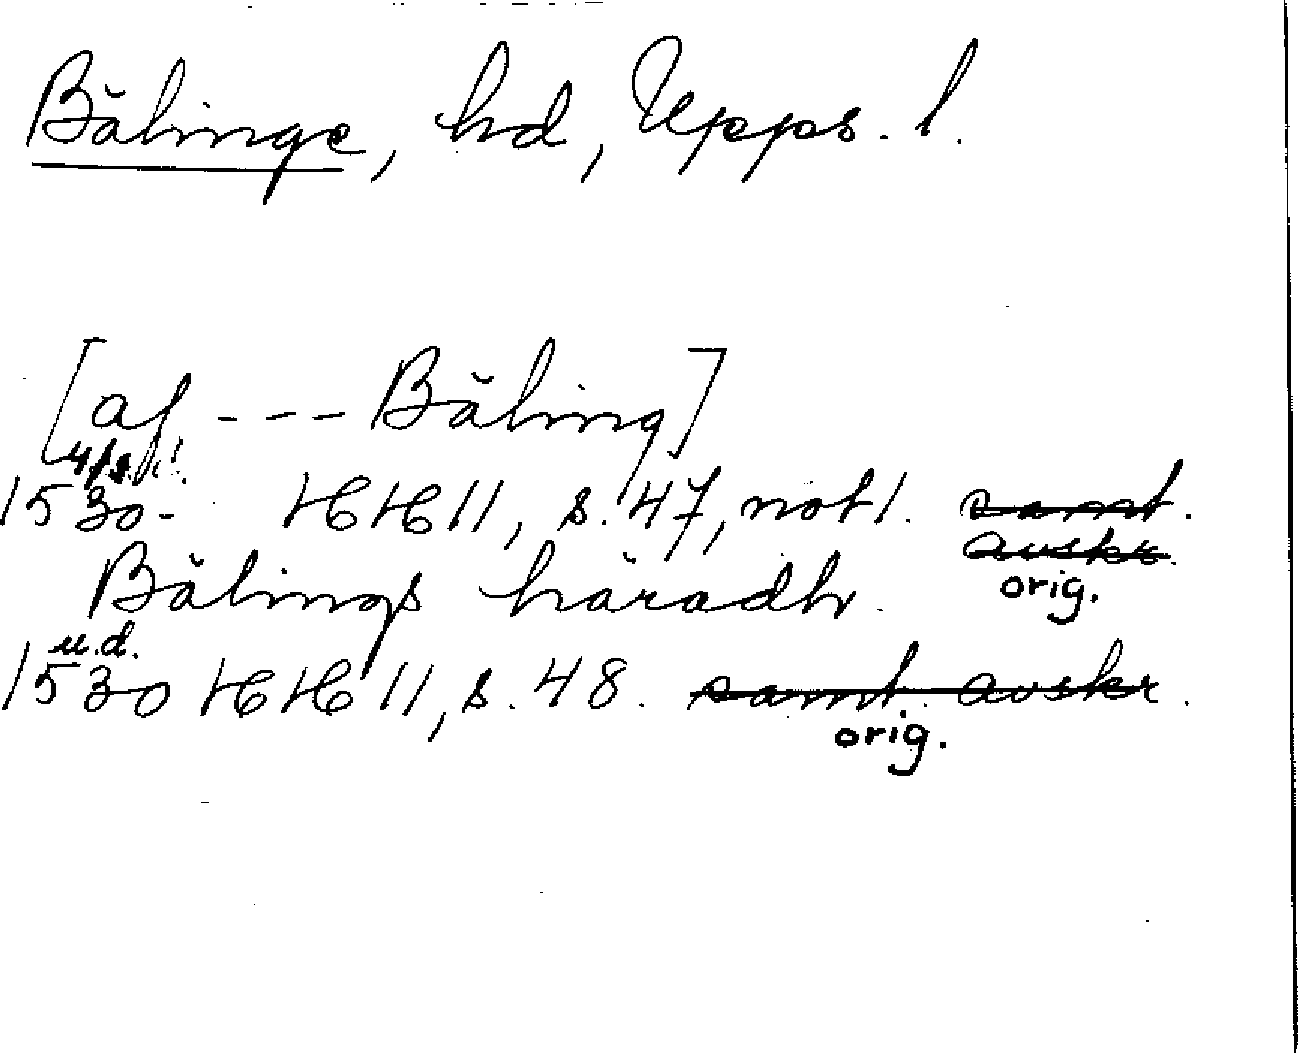 Bälinge, hd, Upps. l.
[af --- Bäling]
1530 HH 11, s. 47, not 1. samt.
avskr.
orig.
Bälings häradh.
u.d.
1530 HH 11, s. 48. samt. avskr.
orig.